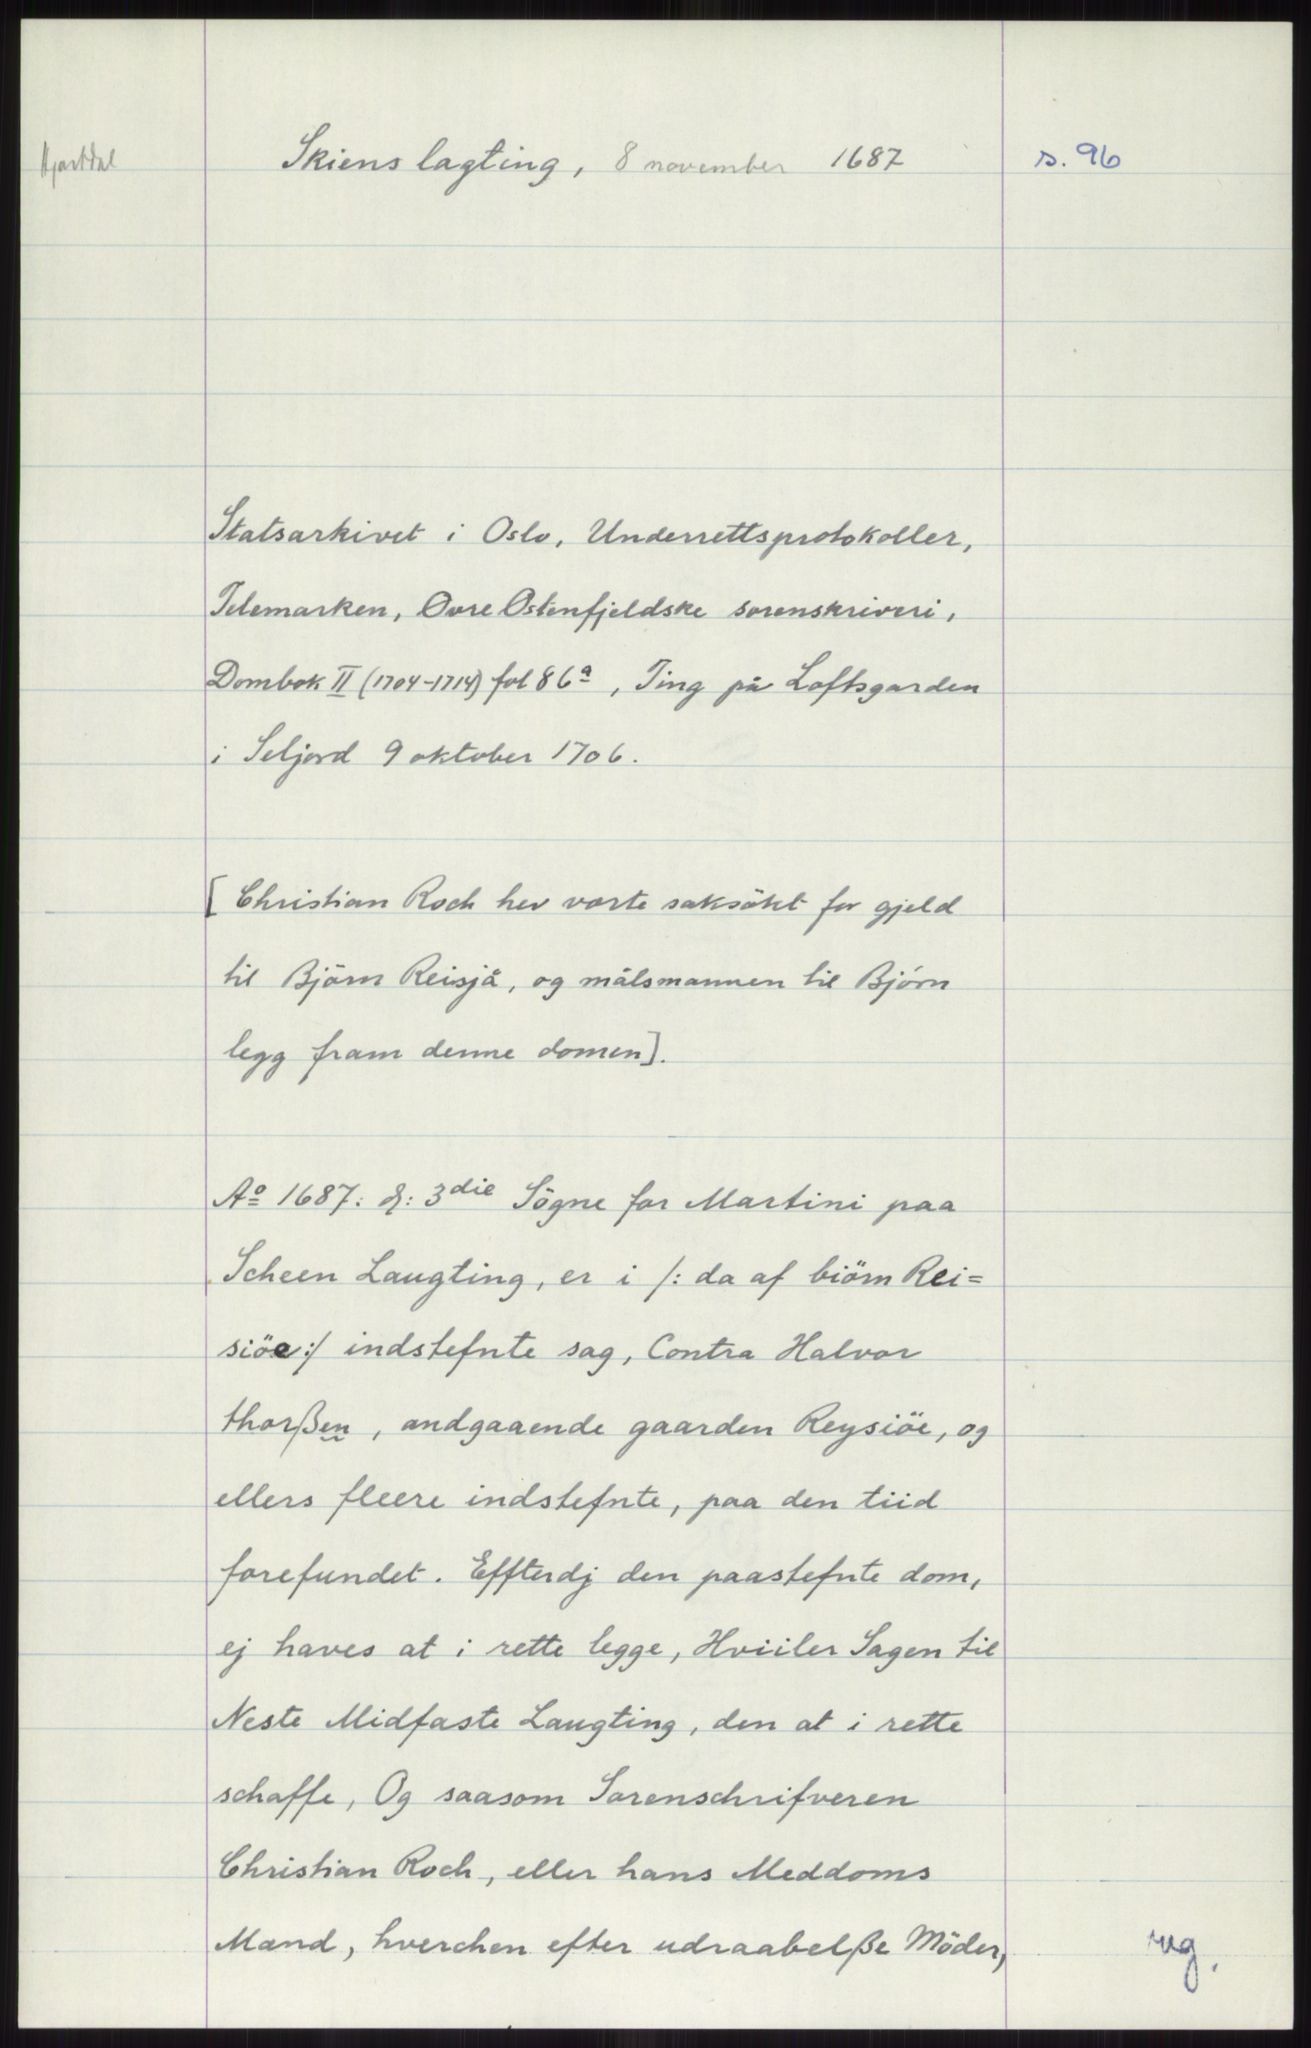 Hjartdal
Skiens lagting, 8 november 1687
s. 96
Statsarkivet i Oslo, Underrettsprotokoller,
Telemarken, Øvre Østenfjeldske sorenskriveri,
Dombok II (1704-1714) fol 86a, Ting på Loftsgarden
i Seljord 9 oktober 1706.
[Christian Roch hev vorte saksökt for gjeld
til Björn Reisjå, og målsmannen til Bjórn
legg fram denne domen].
Ao 1687: d: 3die Sögne for Martini paa
Scheen Laugting, er i /: da af biörn Rei=
siöe:/ indstefnte sag, Contra Halvor
thorßen, andgaaende gaarden Reysiöe, og
ellers fleere indstefnte, paa den tiid
forefundet. Effterdj den paastefnte dom,
ej haves at i rette legge, Hviiler Sagen til
Neste Midfaste Laugting, den at i rette
schaffe, Og saasom Sorenschrifveren
Christian Roch, eller hans Meddoms
Mænd, hverchen efter udraabelße Möder,
rug.